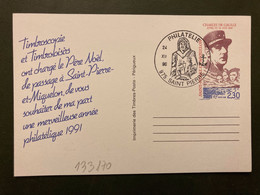 Timbroscopie
et Timbroloisirs
ont chargé le Père Noël,
de passage à Saint-Pierre-
et-Miquelon, de vous
souhaiter de ma part
une merveilleuse année
philatélique 1991
133/70
Imprimerie des Timbres-Poste - Périgueux
PHILATELIE
975 SAINT PIERRE
CHARLES DE GAULLE
2,30